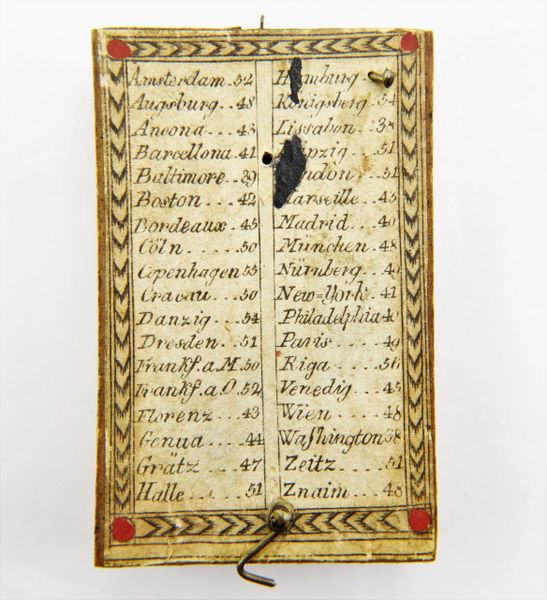 Amsterdam . 52
Augsburg . . 48
Ancona . . . 43
Barcellona . 41
Baltimore . . 39
Boston . . . 42
Bordeaux . . 45
Cöln . . . . 50
Copenhagen 55
Cracau . . . 50
Danzig . . . 54
Dresden . . . 51
Frankf. a. M. 50
Frankf. a. O. 52
Florenz . . . 43
Genua . . . . 44
Grätz . . . . 47
Halle . . . . 51
Hamburg
Königsberg . 54
Lissabon . . 38
Leipzig . . . 51
London . . . 51
Marseille . . 43
Madrid . . . 40
München . . 48
Nürnberg . .
New=York . 41
Philadelphia 40
Paris . . . . 49
Riga . . . . 56
Venedig . . . 45
Wien . . . . 48
Waſhington 38
Zeitz . . . . 51
Znaim . . . 48